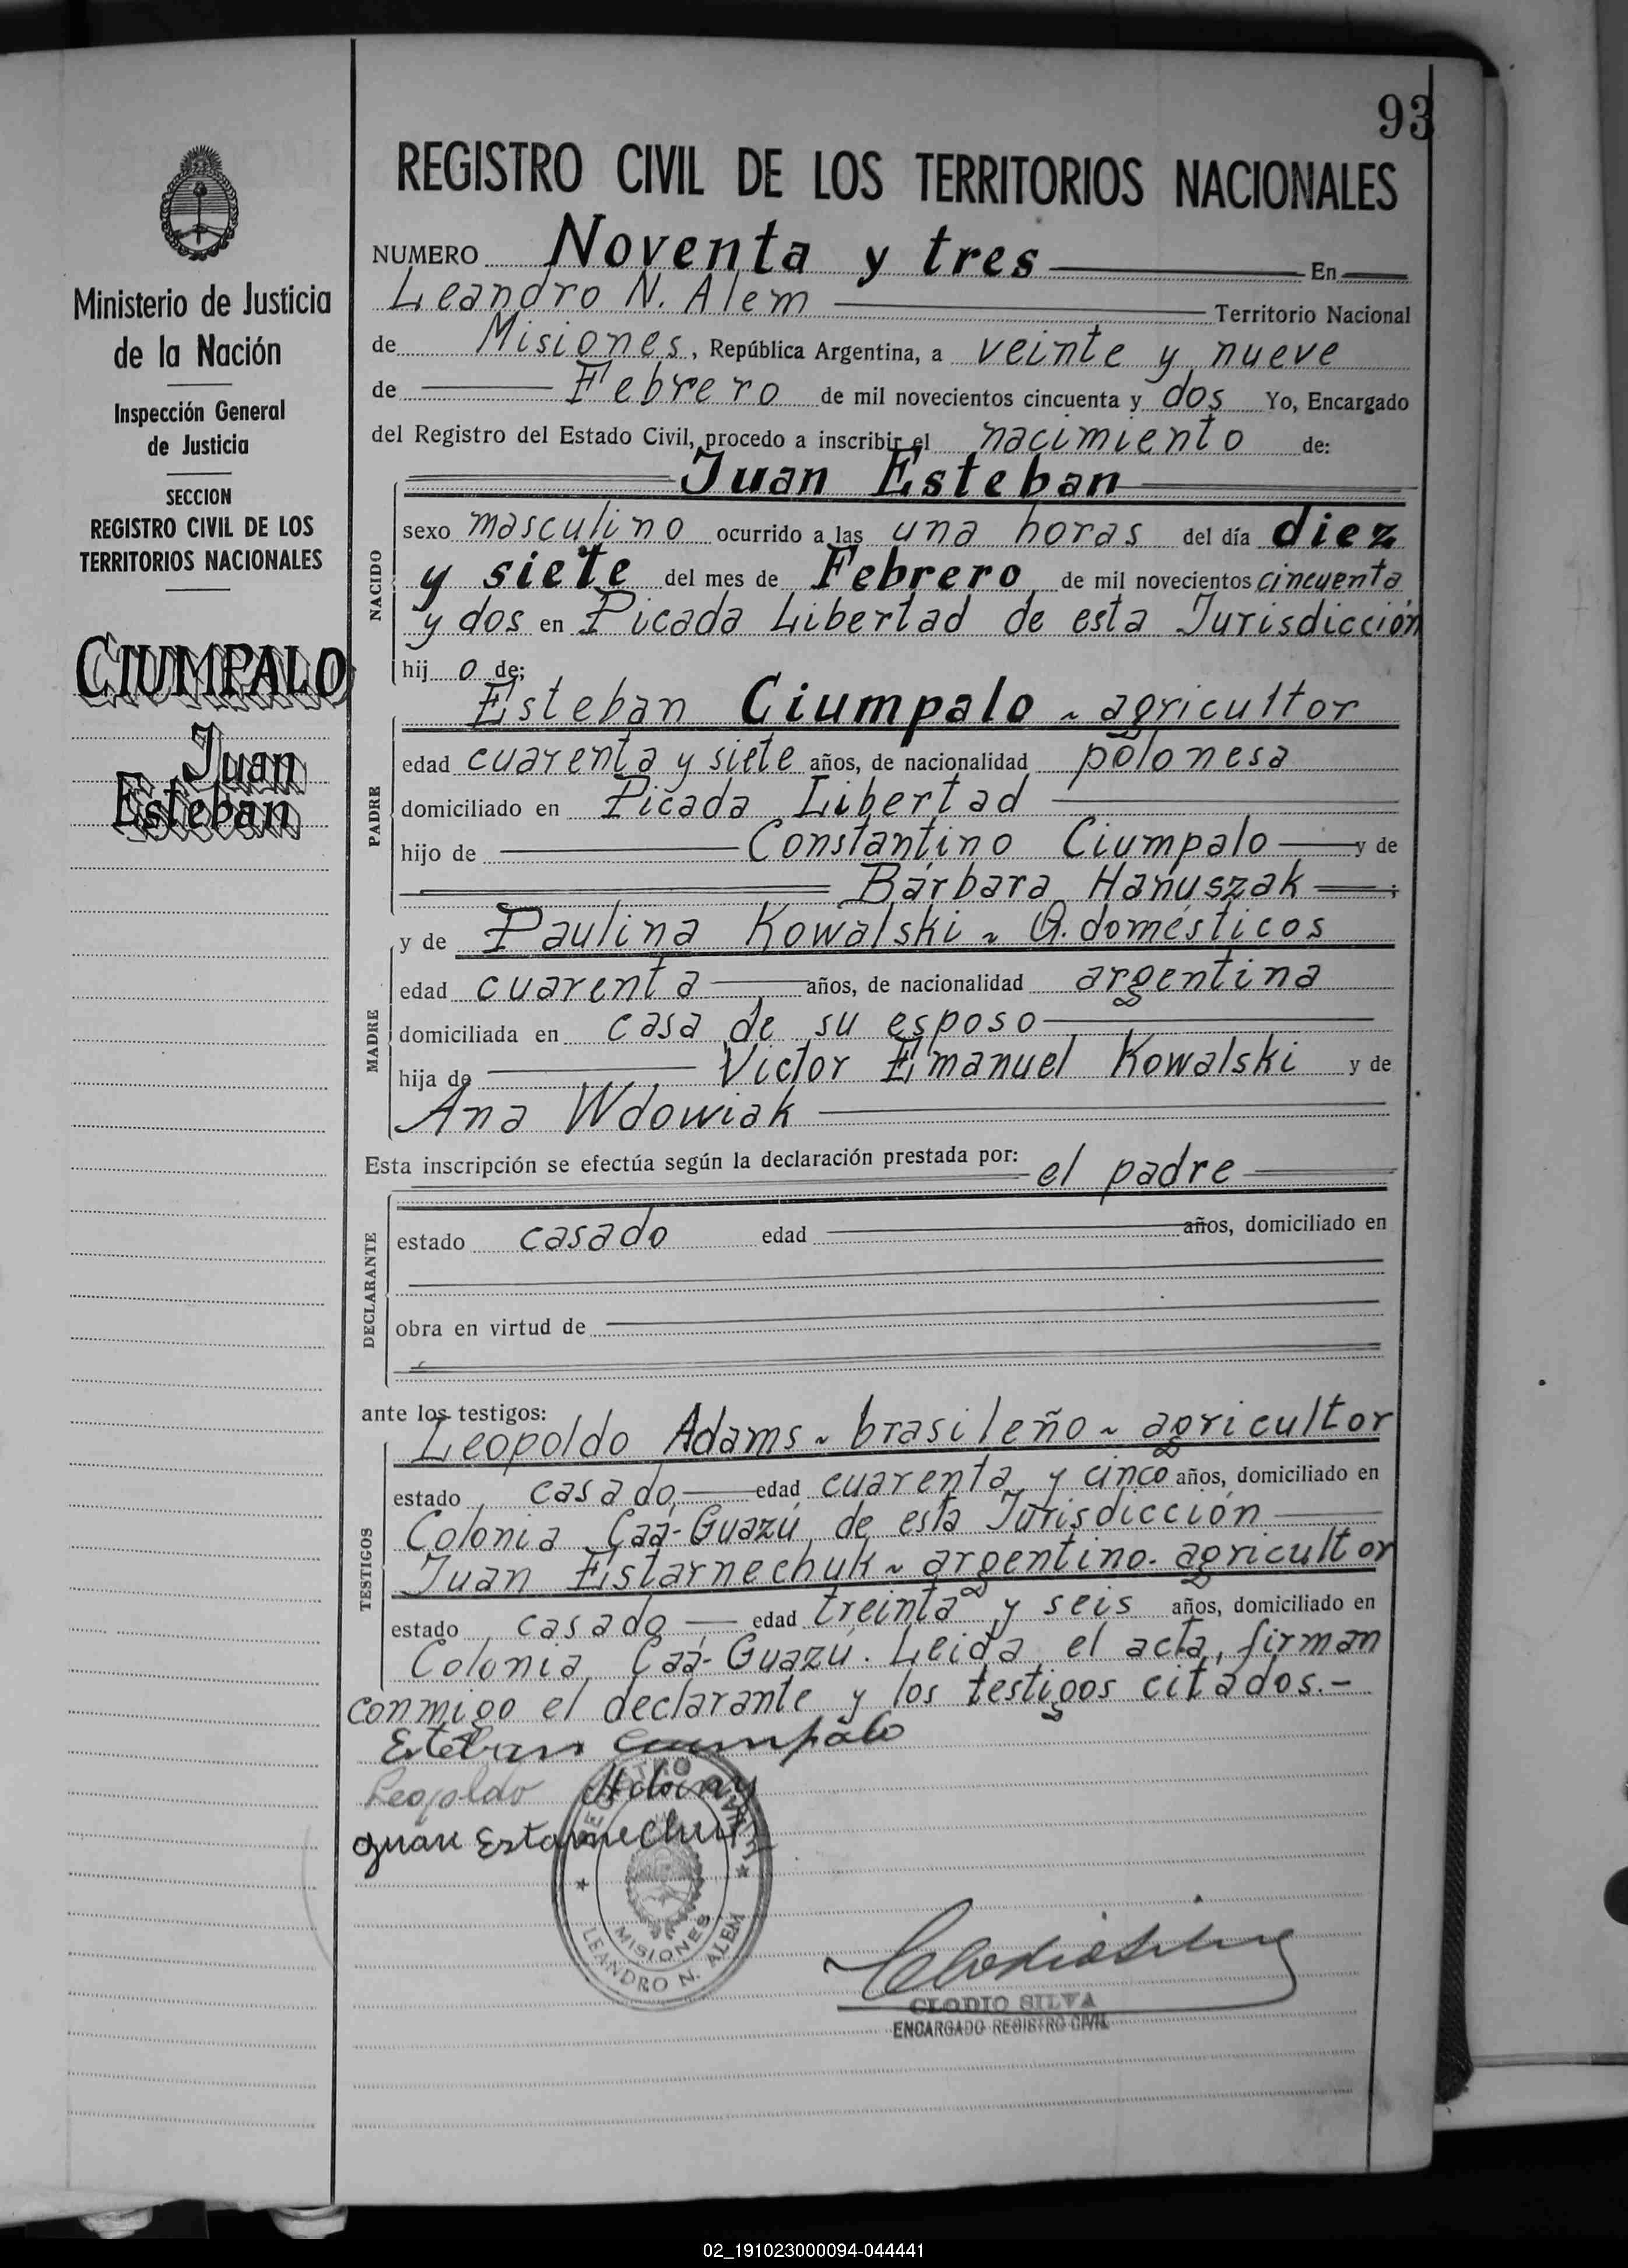 93
REGISTRO CIVIL DE LOS TERRITORIOS NACIONALES
Ministerio de Justicia
de la Nación
Inspección General
de Justicia
SECCION
REGISTRO CIVIL DE LOS
TERRITORIOS NACIONALES
CIUMPALO
Juan
Esteban
NUMERO Noventa y tres En
Leandro N. Alem Territorio Nacional
de Misiones, República Argentina, a veinte y nueve
de Febrero de mil novecientos cincuenta y dos Yo, Encargado
del Registro del Estado Civil, procedo a inscribir el nacimiento de:
Juan Esteban
NACIDO
sexo masculino ocurrido a las una horas del día diez
y siete del mes de Febrero de mil novecientos cincuenta
y dos en Picada Libertad de esta Jurisdicción
hij o de;
Esteban Ciumpalo ~ agricultor
PADRE
edad cuarenta y siete años, de nacionalidad polonesa
domiciliado en Picada Libertad
hijo de Constantino Ciumpalo y de
Bárbara Hanuszak ;
y de Paulina Kowalski ~ Q. domésticos
MADRE
edad cuarenta años, de nacionalidad argentina
domiciliada en casa de su esposo
hija de Victor Emanuel Kowalski y de
Ana Wdowiak
Esta inscripción se efectúa según la declaración prestada por: el padre
DECLARANTE
estado casado edad años, domiciliado en
obra en virtud de
ante los testigos:
Leopoldo Adams ~ brasileño ~ agricultor
TESTIGOS
estado casado edad cuarenta y cinco años, domiciliado en
Colonia Caá-Guazú de esta Jurisdicción
Juan Estarnechuk ~ argentino - agricultor
estado casado edad treinta y seis años, domiciliado en
Colonia Caá-Guazú. Leida el acta, firman
conmigo el declarante y los testigos citados.-
Esteban Ciumpalo
Leopoldo
Juan Estarnechuk
REGISTRO CIVIL
MISIONES
LEANDRO N. ALEM
Clodio Silva
CLODIO SILVA
ENCARGADO REGISTRO CIVIL
02_191023000094-044441